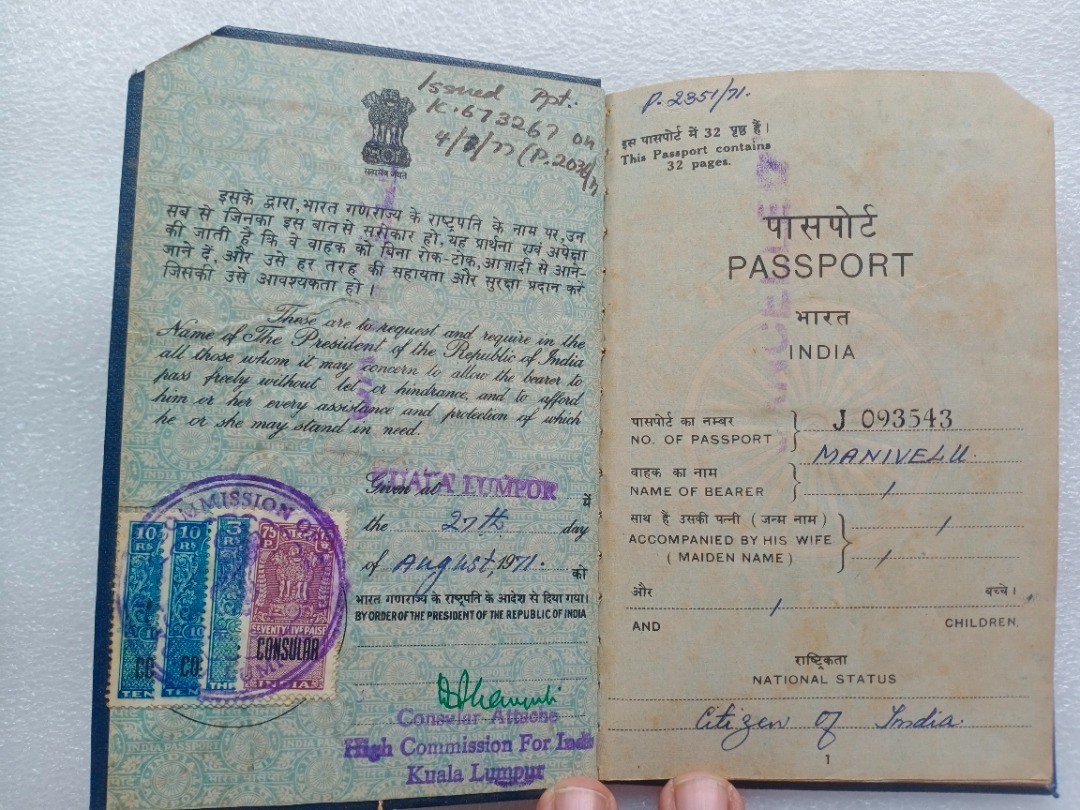 Issued Ppt.
K.673267 on
4/8/77 (P.2036/77
सत्यमेव जयते
इसके द्वारा, भारत गणराज्य के राष्ट्रपति के नाम पर, उन
सब से जिनका इस बात से सरोकार हो, यह प्रार्थना एवं अपेक्षा
की जाती है कि वे वाहक को बिना रोक-टोक, आज़ादी से आने-
जाने दें, और उसे हर तरह की सहायता और सुरक्षा प्रदान करें
जिसकी उसे आवश्यकता हो ।
These are to request and require in the
Name of The President of the Republic of India
all those whom it may concern to allow the bearer to
pass freely without let or hindrance, and to afford
him or her every assistance and protection of which
he or she may stand in need.
Given at KUALA LUMPUR में
the 27th day
of August, 1971. को
भारत गणराज्य के राष्ट्रपति के आदेश से दिया गया।
BY ORDER OF THE PRESIDENT OF THE REPUBLIC OF INDIA
COMMISSION
10 RS 10 RS 3 RS 75 P
SEVENTY FIVE PAISE
CONSULAR
TEN TEN INDIA
Consular Attache
High Commission For India
Kuala Lumpur
P.2351/71.
इस पासपोर्ट में 32 पृष्ठ हैं।
This Passport contains
32 pages.
पासपोर्ट
PASSPORT
भारत
INDIA
पासपोर्ट का नम्बर
NO. OF PASSPORT J 093543
वाहक का नाम MANIVELU.
NAME OF BEARER /
साथ है उसकी पत्नी ( जन्म नाम ) /
ACCOMPANIED BY HIS WIFE
( MAIDEN NAME ) /
और / बच्चे।
AND CHILDREN.
राष्ट्रिकता
NATIONAL STATUS
Citizen of India.
1